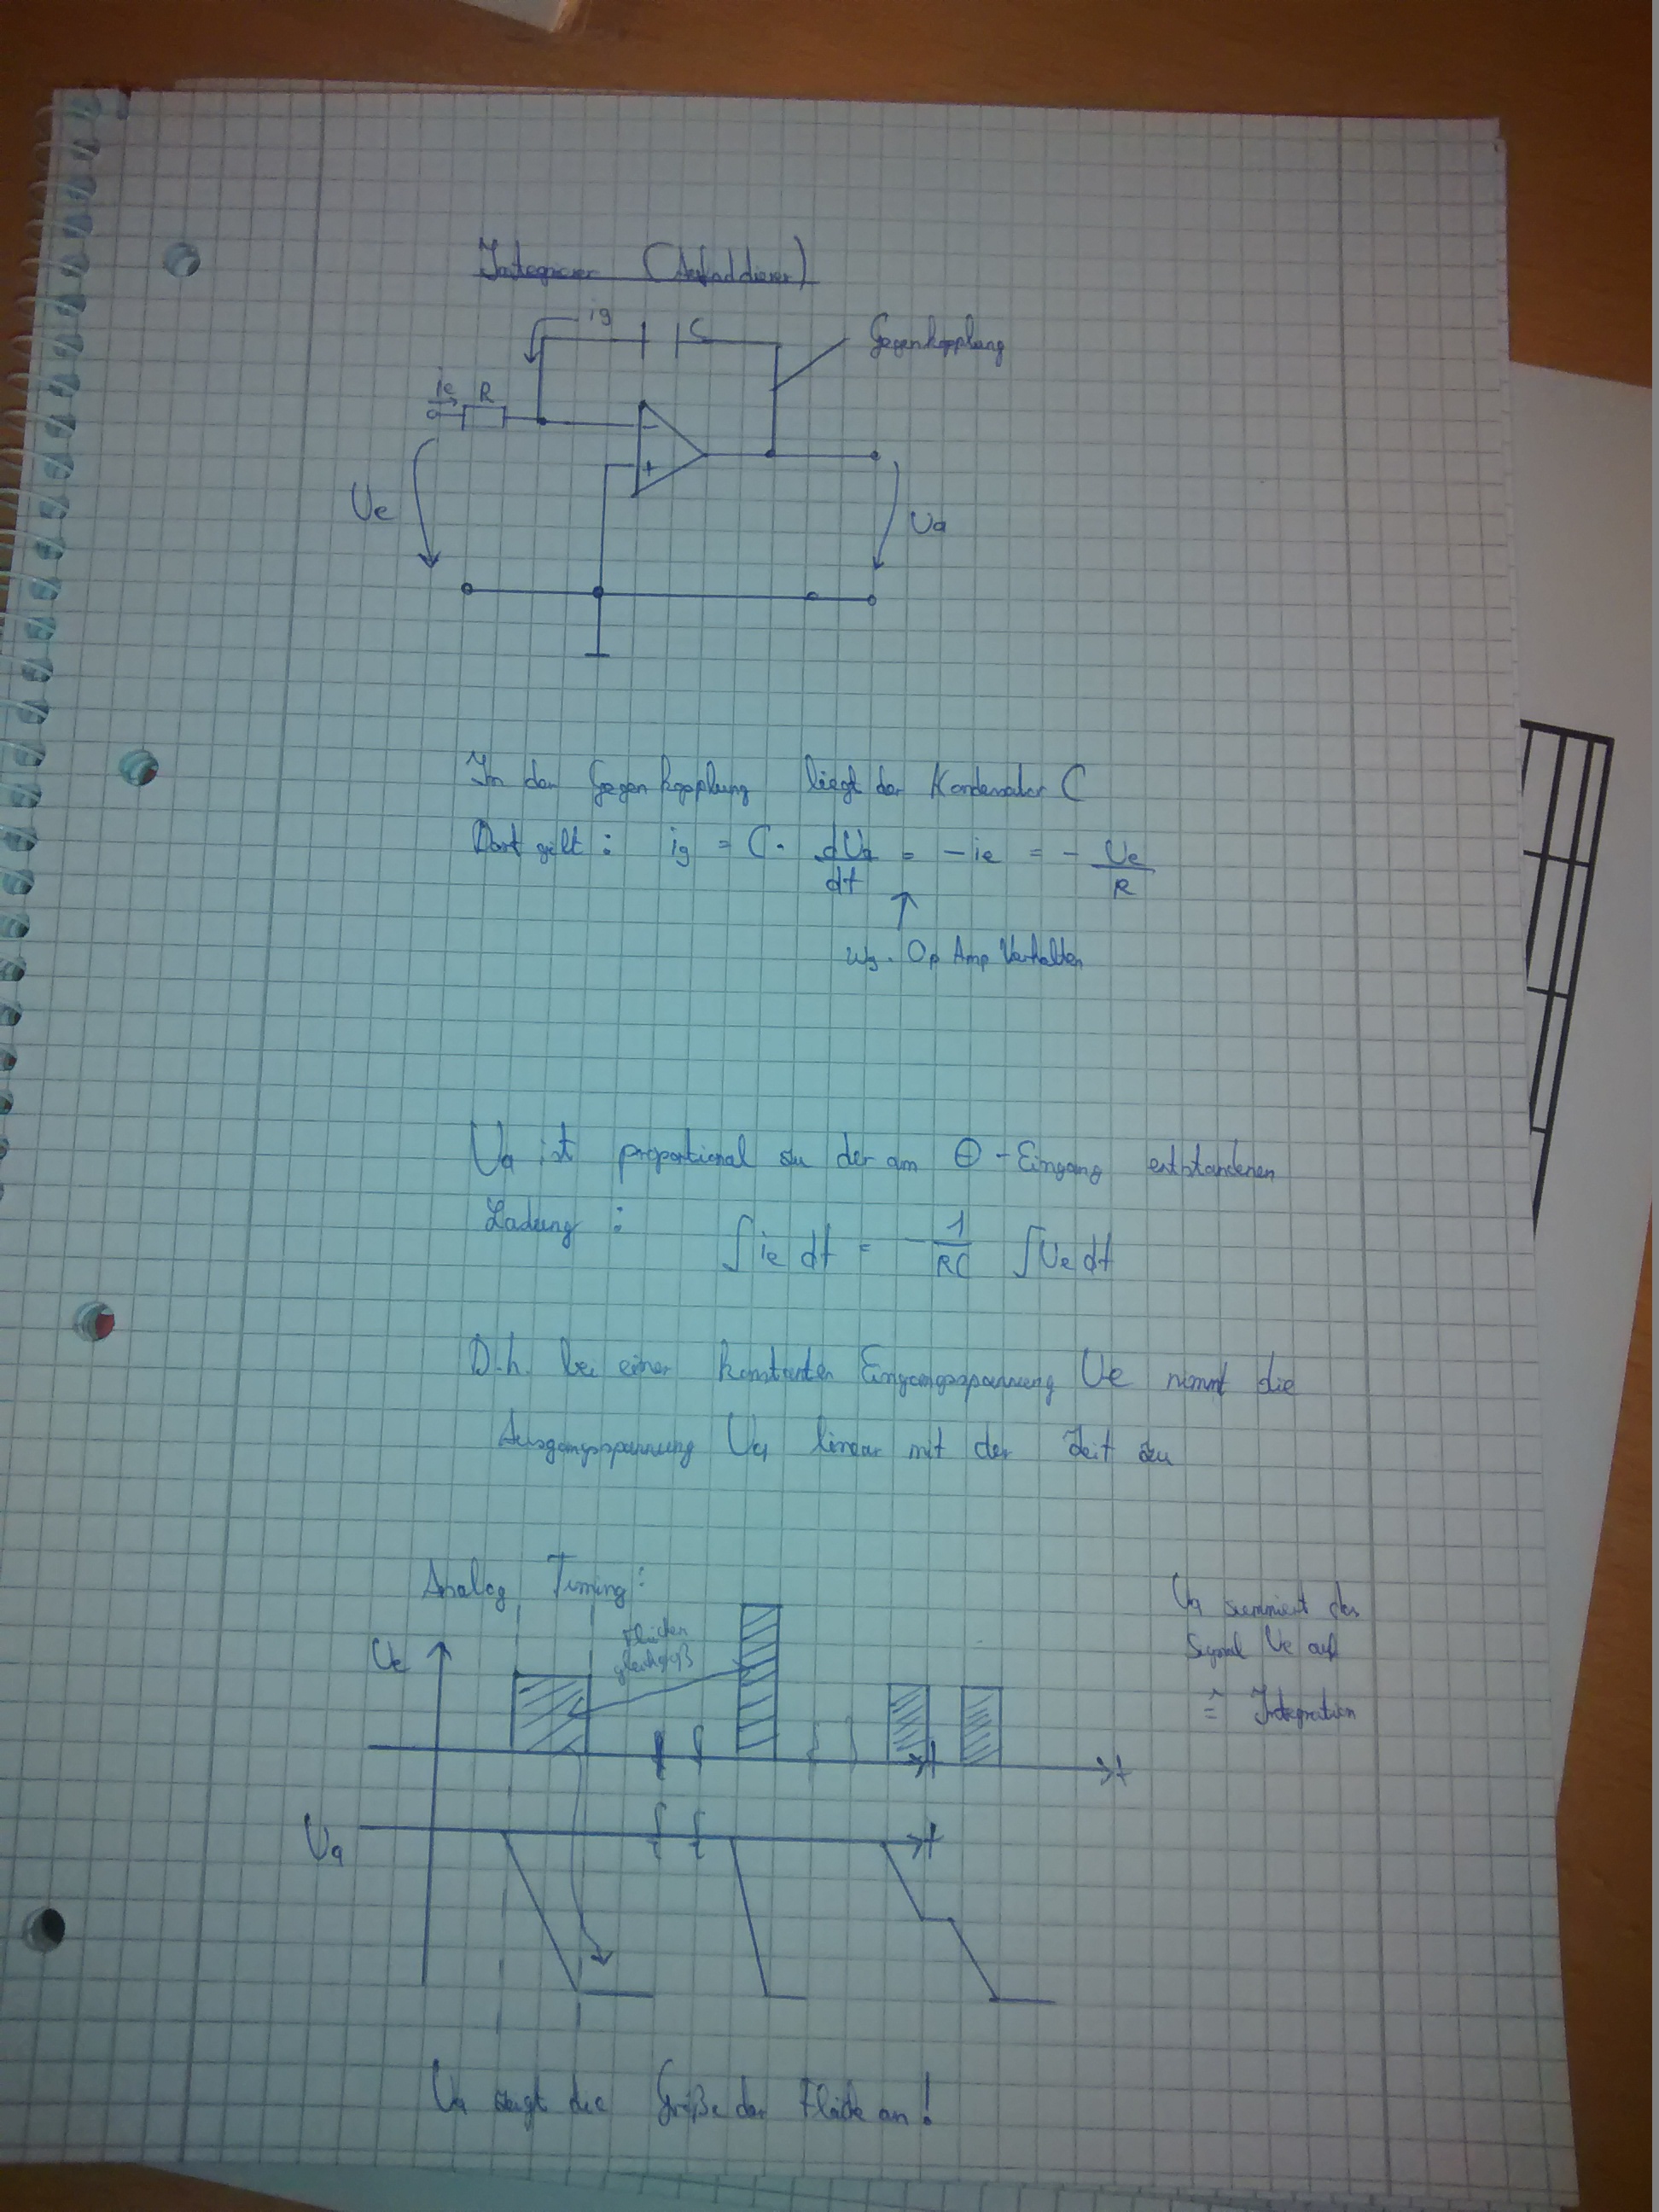 Integrierer (Aufaddierer)
ig
C
Gegenkopplung
ie R
-
+
Ue
Ua
In der Gegenkopplung liegt der Kondensator C
Dort gilt : ig = C · dUa/dt = - ie = - Ue/R
wg. Op Amp Verhalten
Ua ist proportional zu der am ⊖ - Eingang entstandenen
Ladung : ∫ ie dt = - 1/RC ∫ Ue dt
D.h. bei einer konstanten Eingangsspannung Ue nimmt die
Ausgangsspannung Ua linear mit der Zeit zu
Analog Timing :
Ua summiert das
Signal Ue auf
≙ Integration
Ue
Flächen
gleichgroß
t
t
Ua
t
Ua zeigt die Größe der Fläche an !